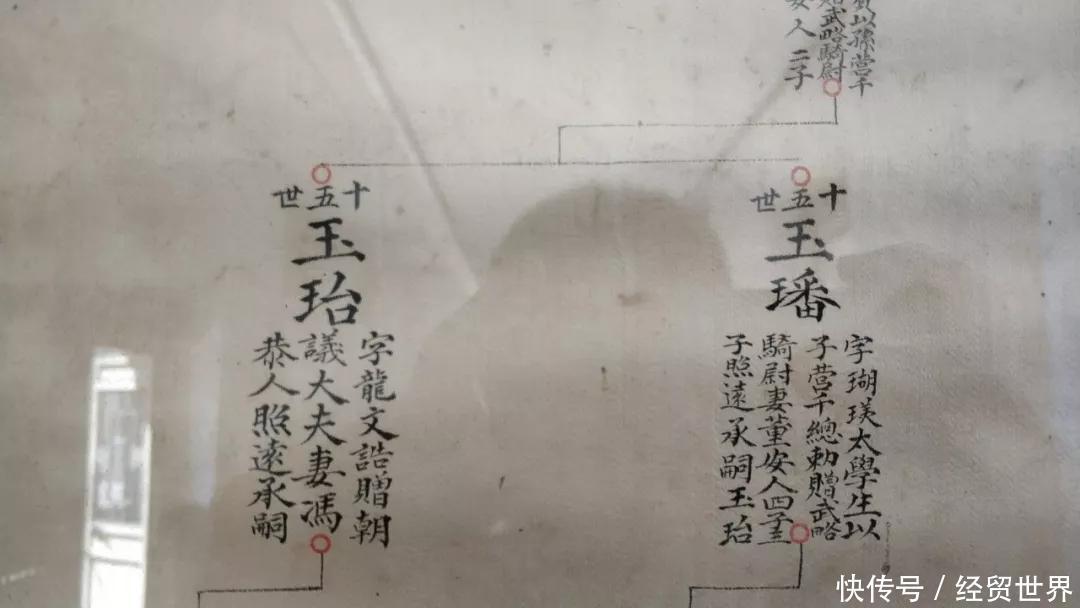 以孫營千
武略騎尉
人二子
十五世
玉璠
字瑚瑛太學生以
子營千總勅贈武略
騎尉妻董安人四子三
子照遠承嗣玉珆
十五世
玉珆
字龍文誥贈朝
議大夫妻馮
恭人照遠承嗣
快传号 / 经贸世界